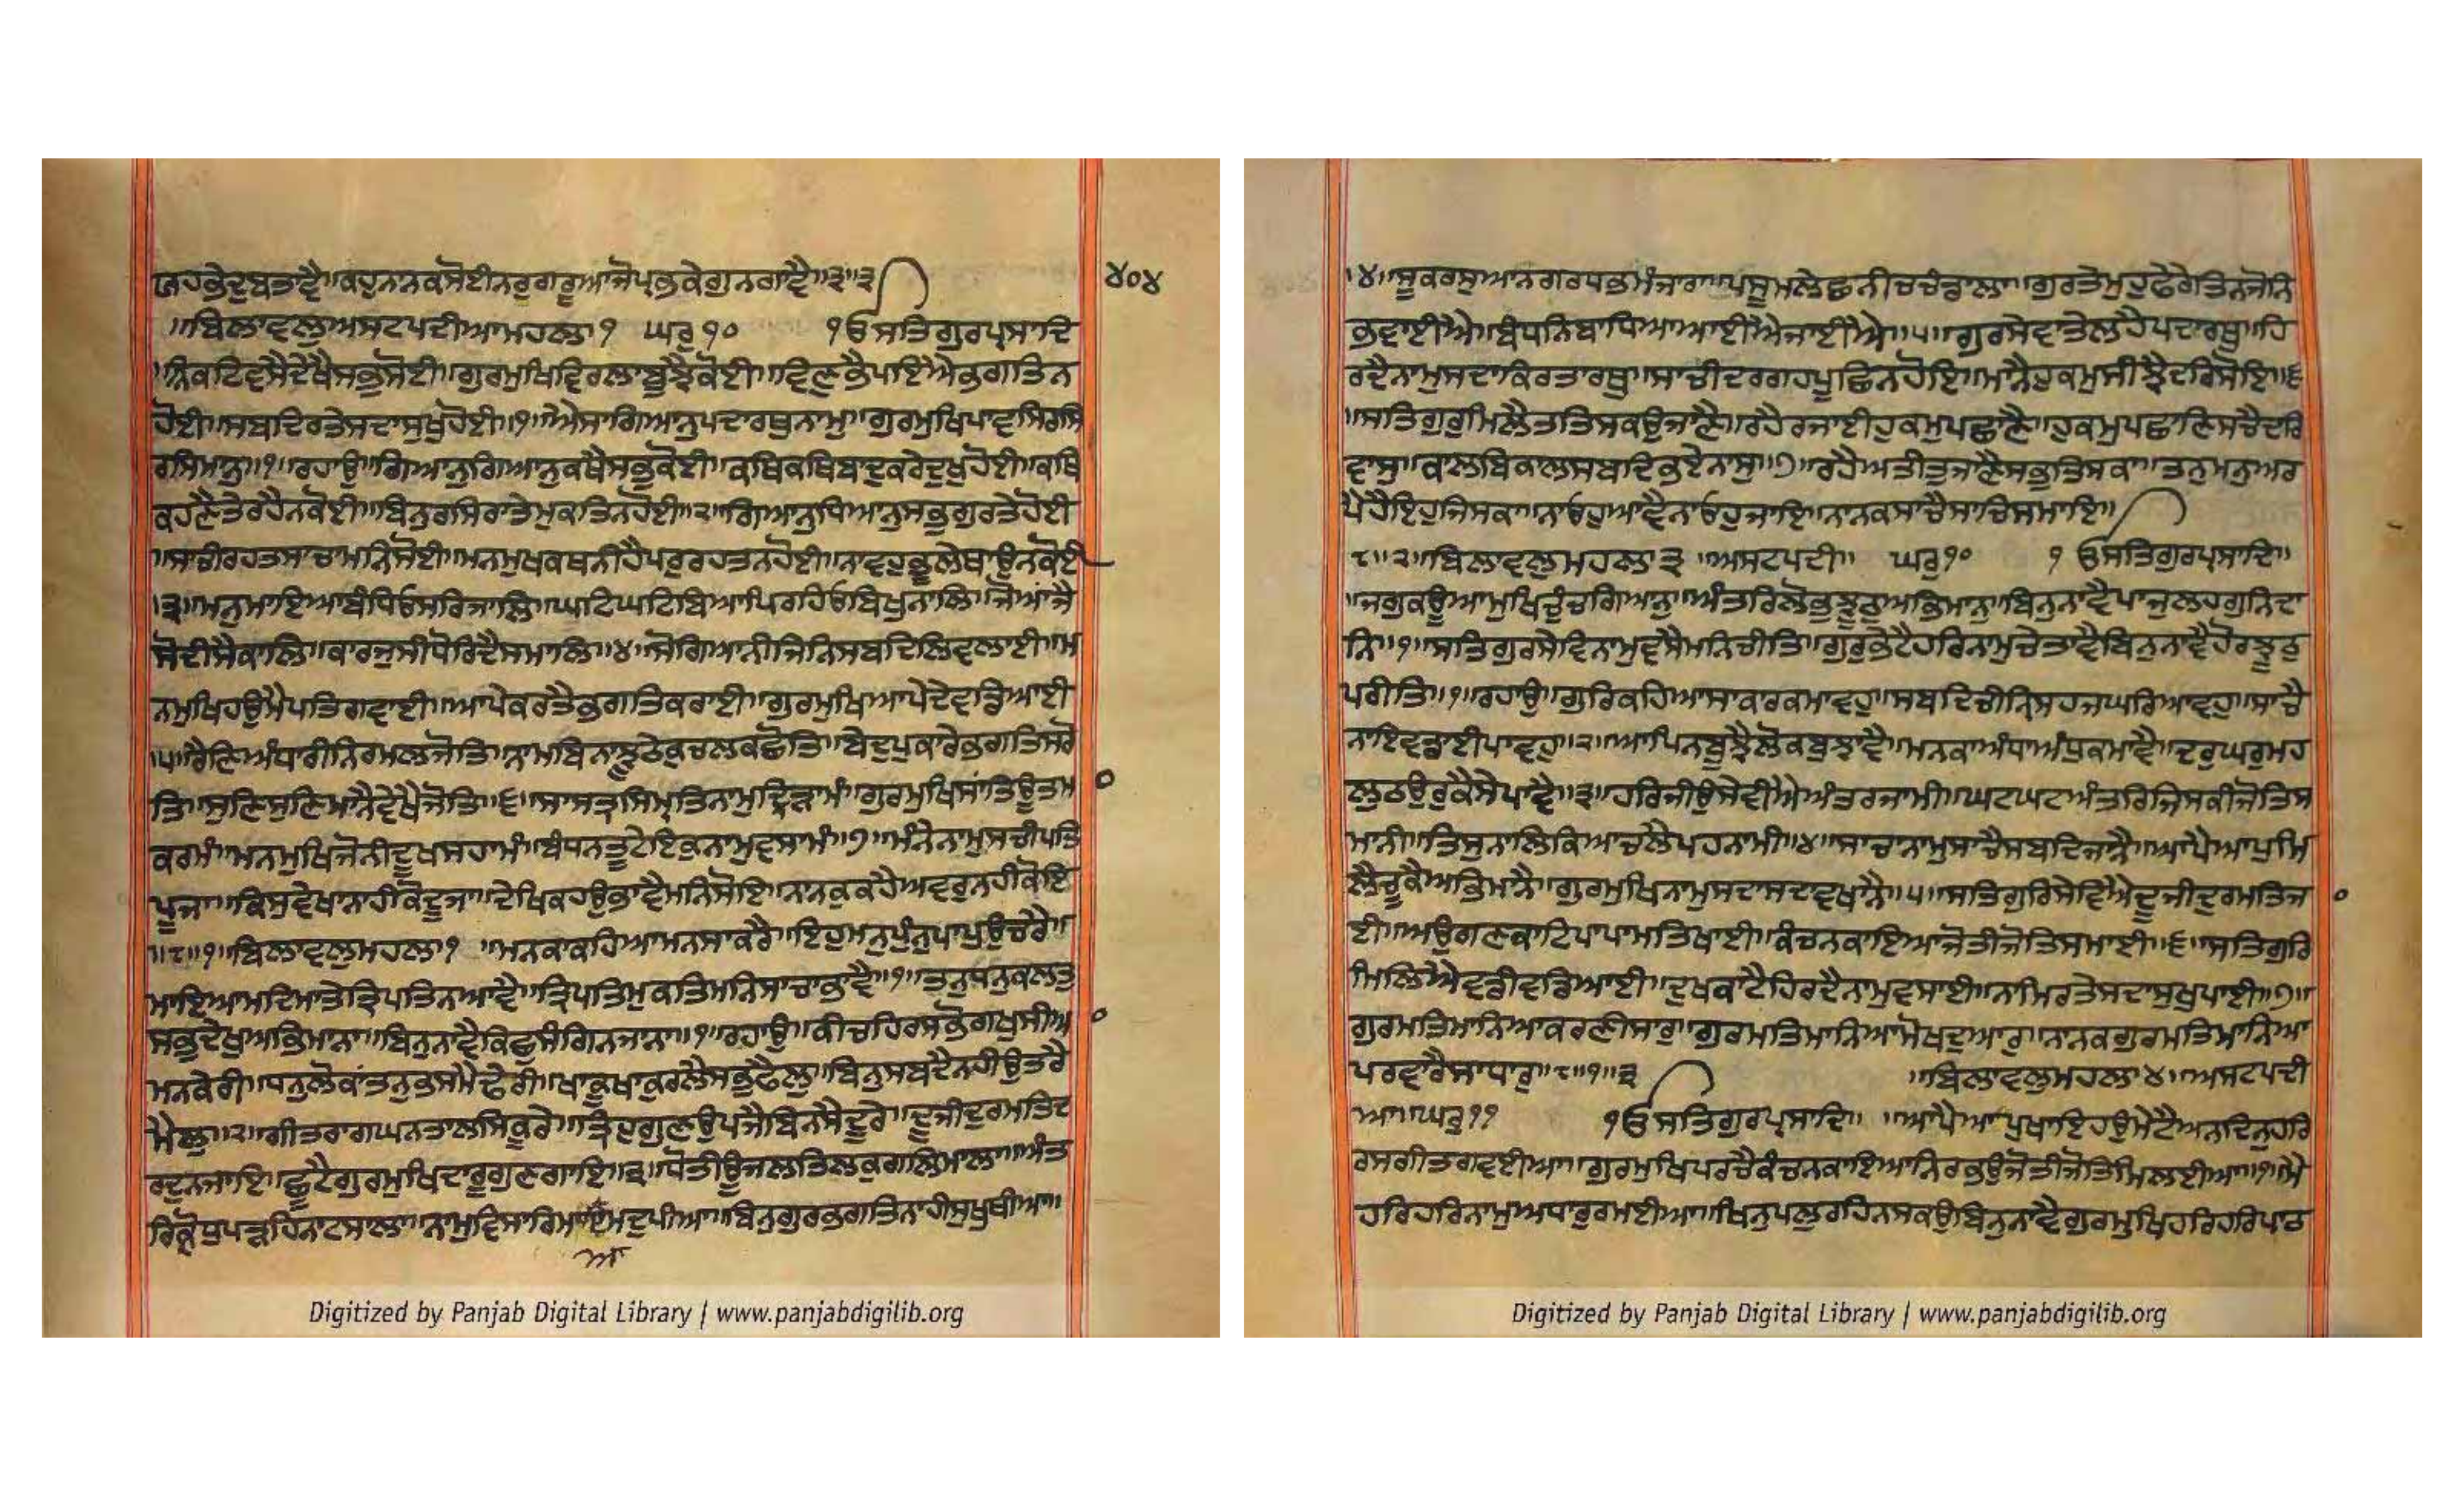 ਯਹਕੇਦੁਬਤਾਵੈ॥ਕਹੁਨਾਨਕਸੋਈਨਰੁਗਰੂਆਜੋਪ੍ਰਭਕੇਗੁਨਗਾਵੈ॥੩॥੩
੪੦੪
॥ਬਿਲਾਵਲੁਅਸਟਪਦੀਆਮਹਲਾ੧ ਘਰੁ੧੦ ੧ਓਸਤਿਗੁਰਪ੍ਰਸਾਦਿ
॥ਨਿਕਟਿਵਸੈਦੇਖੈਸਭੁਸੋਈ॥ਗੁਰਮੁਖਿਵਿਰਲਾਬੂਝੈਕੋਈ॥ਵਿਣੁਭੈਪਇਐਭਗਤਿਨ
ਹੋਈ॥ਸਬਦਿਰਤੇਸਦਾਸੁਖੁਹੋਈ॥੧॥ਐਸਾਗਿਆਨੁਪਦਾਰਥੁਨਾਮੁ॥ਗੁਰਮੁਖਿਪਾਵਸਿਰਸਿ
ਰਸਿਮਾਨੁ॥੧॥ਰਹਾਉ॥ਗਿਆਨੁਗਿਆਨੁਕਥੈਸਭੁਕੋਈ॥ਕਥਿਕਥਿਬਾਦੁਕਰੇਦੁਖੁਹੋਈ॥ਕਥਿ
ਕਹਣੈਤੇਰਹੈਨਕੋਈ॥ਬਿਨੁਰਸਿਰਾਤੇਮੁਕਤਿਨਹੋਈ॥੨॥ਗਿਆਨੁਧਿਆਨੁਸਭੁਗੁਰਤੇਹੋਈ
॥ਸਾਚੀਰਹਤਸਾਚਾਮਨਿਸੋਈ॥ਮਨਮੁਖਕਥਨੀਹੈਪਰੁਰਹਤਨਹੋਈ॥ਨਾਵਹੁਭੂਲੇਥਾਉਨਕੋਈ
॥੩॥ਮਨੁਮਾਇਆਬੰਧਿਓਸਰਿਜਾਲਿ॥ਘਟਿਘਟਿਬਿਆਪਿਰਹਿਓਬਿਖੁਨਾਲਿ॥ਜੋਆਂਜੈ
ਸੋਦੀਸੈਕਾਲਿ॥ਕਾਰਜੁਸੀਧੋਰਿਦੈਸਮਾਲਿ॥੪॥ਸੋਗਿਆਨੀਜਿਨਿਸਬਦਿਲਿਵਲਾਈ॥ਮ
ਨਮੁਖਿਹਉਮੈਪਤਿਗਵਾਈ॥ਆਪੇਕਰਤੈਭਗਤਿਕਰਾਈ॥ਗੁਰਮੁਖਿਆਪੇਦੇਵਡਿਆਈ
॥੫॥ਰੈਣਿਅੰਧਾਰੀਨਿਰਮਲਜੋਤਿ॥ਨਾਮਬਿਨਾਝੂਠੇਕੁਚਲਕਛੋਤਿ॥ਬੇਦੁਪੁਕਾਰੇਭਗਤਿਸਰੋ
ਤਿ॥ਸੁਣਿਸੁਣਿਮਾਨੈਵੇਖੈਜੋਤਿ॥੬॥ਸਾਸਤ੍ਰਸਿਮ੍ਰਿਤਿਨਾਮੁਦ੍ਰਿੜਾਮੰ॥ਗੁਰਮੁਖਿਸਾਂਤਿਊਤਮ
ਕਰਾਮੰ॥ਮਨਮੁਖਿਜੋਨੀਦੂਖਸਹਾਮੰ॥ਬੰਧਨਤੂਟੇਇਕੁਨਾਮੁਵਸਾਮੰ॥੭॥ਮੰਨੇਨਾਮੁਸਚੀਪਤਿ
ਪੂਜਾ॥ਕਿਸੁਵੇਖਾਨਾਹੀਕੋਦੂਜਾ॥ਦੇਖਿਕਹਉਭਾਵੈਮਨਿਸੋਇ॥ਨਾਨਕੁਕਹੈਅਵਰੁਨਹੀਕੋਇ
॥੮॥੧॥ਬਿਲਾਵਲੁਮਹਲਾ੧ ॥ਮਨਕਾਕਹਿਆਮਨਸਾਕਰੈ॥ਇਹੁਮਨੁਪੁੰਨੁਪਾਪੁਉਚਰੇ॥
ਮਾਇਆਮਦਿਮਾਤੇਤ੍ਰਿਪਤਿਨਆਵੈ॥ਤ੍ਰਿਪਤਿਮੁਕਤਿਮਨਿਸਾਚਾਭਾਵੈ॥੧॥ਤਨੁਧਨੁਕਲਤੁ
ਸਭੁਦੇਖੁਅਭਿਮਾਨਾ॥ਬਿਨੁਨਾਵੈਕਿਛੁਸੰਗਿਨਜਾਨਾ॥੧॥ਰਹਾਉ॥ਕੀਚਹਿਰਸਭੋਗਖੁਸੀਆ
ਮਨਕੇਰੀ॥ਧਨੁਲੋਕਾਂਤਨੁਭਸਮੈਢੇਰੀ॥ਖਾਕੂਖਾਕੁਰਲੈਸਭੁਫੈਲੁ॥ਬਿਨੁਸਬਦੈਨਹੀਉਤਰੈ
ਮੈਲੁ॥੨॥ਗੀਤਰਾਗਘਨਤਾਲਸਿਕੂਰੇ॥ਤ੍ਰਿਹੁਗੁਣਉਪਜੈਬਿਨਸੈਦੂਰੇ॥ਦੂਜੀਦੁਰਮਤਿਦ
ਰਦੁਨਜਾਇ॥ਛੂਟੈਗੁਰਮੁਖਿਦਾਰੂਗੁਣਗਾਇ॥੩॥ਧੋਤੀਊਜਲਤਿਲਕੁਗਲਿਮਾਲਾ॥ਅੰਤ
ਰਿਕ੍ਰੋਧੁਪੜਹਿਨਾਟਸਾਲਾ॥ਨਾਮੁਵਿਸਾਰਿਮਾਇਮਦੁਪੀਆ॥ਬਿਨੁਗੁਰਭਗਤਿਨਾਹੀਸੁਖੁਥੀਆ॥
ਆ
Digitized by Panjab Digital Library | www.panjabdigilib.org
।੪॥ਸੂਕਰਸੁਆਨਗਰਧਭਮੰਜਾਰਾ॥ਪਸੂਮਲੇਛਨੀਚਚੰਡਾਲਾ॥ਗੁਰਤੇਮੁਹੁਫੇਰੇਤਿਨਜੋਨਿ
ਭਵਾਈਐ॥ਬੰਧਨਿਬਾਧਿਆਆਈਐਜਾਈਐ॥੫॥ਗੁਰਸੇਵਾਤੇਲਹੈਪਦਾਰਥੁ॥ਹਿ
ਰਦੈਨਾਮੁਸਦਾਕਿਰਤਾਰਥੁ॥ਸਾਚੀਦਰਗਹਪੂਛਨਹੋਇ॥ਮਾਨੈਹੁਕਮੁਸੀਝੈਦਰਿਸੋਇ॥੬
॥ਸਤਿਗੁਰੁਮਿਲੈਤਤਿਸਕਉਜਾਣੈ॥ਰਹੈਰਜਾਈਹੁਕਮੁਪਛਾਣੈ॥ਹੁਕਮੁਪਛਾਣਿਸਚੈਦਰਿ
ਵਾਸੁ॥ਕਾਲਬਿਕਾਲਸਬਦਿਭਏਨਾਸੁ॥੭॥ਰਹੈਅਤੀਤੁਜਾਣੈਸਭੁਤਿਸਕਾ॥ਤਨੁਮਨੁਅਰ
ਪੇਹੈਇਹੁਜਿਸਕਾ॥ਨਾਓਹੁਆਵੈਨਾਓਹੁਜਾਇ॥ਨਾਨਕਸਾਚੈਸਾਚਿਸਮਾਇ॥
੮॥੨॥ਬਿਲਾਵਲੁਮਹਲਾ੩ ॥ਅਸਟਪਦੀ॥ ਘਰੁ੧੦ ੧ਓਸਤਿਗੁਰਪ੍ਰਸਾਦਿ॥
॥ਜਗੁਕਊਆਮੁਖਿਚੁੰਚਗਿਆਨੁ॥ਅੰਤਰਿਲੋਭੁਝੂਠੁਅਭਿਮਾਨੁ॥ਬਿਨੁਨਾਵੈਪਾਜੁਲਹਗੁਨਿਦਾ
ਨਿ॥੧॥ਸਤਿਗੁਰਸੇਵਿਨਾਮੁਵਸੈਮਨਿਚੀਤਿ॥ਗੁਰੁਭੇਟੈਹਰਿਨਾਮੁਚੇਤਾਵੈਬਿਨੁਨਾਵੈਹੋਰਝੂਠੁ
ਪਰੀਤਿ॥੧॥ਰਹਾਉ॥ਗੁਰਿਕਹਿਆਸਾਕਾਰਕਮਾਵਹੁ॥ਸਬਦਿਚੀਨ੍ਹਿਸਹਜਘਰਿਆਵਹੁ॥ਸਾਚੈ
ਨਾਇਵਡਾਈਪਾਵਹੁ॥੨॥ਆਪਿਨਬੂਝੈਲੋਕਬੁਝਾਵੈ॥ਮਨਕਾਅੰਧਾਅੰਧੁਕਮਾਵੈ॥ਦਰੁਘਰੁਮਹ
ਲੁਠਉਰੁਕੈਸੇਪਾਵੈ॥੩॥ਹਰਿਜੀਉਸੇਵੀਐਅੰਤਰਜਾਮੀ॥ਘਟਘਟਅੰਤਰਿਜਿਸਕੀਜੋਤਿਸ
ਮਾਨੀ॥ਤਿਸੁਨਾਲਿਕਿਆਚਲੈਪਹਨਾਮੀ॥੪॥ਸਾਚਾਨਾਮੁਸਾਚੈਸਬਦਿਜਾਨੈ॥ਆਪੈਆਪੁਮਿ
ਲੈਚੂਕੈਅਭਿਮਾਨੈ॥ਗੁਰਮੁਖਿਨਾਮੁਸਦਾਸਦਾਵਖਾਨੈ॥੫॥ਸਤਿਗੁਰਿਸੇਵਿਐਦੂਜੀਦੁਰਮਤਿਜਾ
ਈ॥ਅਉਗਣਕਾਟਿਪਾਪਾਮਤਿਖਾਈ॥ਕੰਚਨਕਾਇਆਜੋਤੀਜੋਤਿਸਮਾਈ॥੬॥ਸਤਿਗੁਰਿ
ਮਿਲਿਐਵਡੀਵਡਿਆਈ॥ਦੁਖਕਾਟੈਹਿਰਦੈਨਾਮੁਵਸਾਈ॥ਨਾਮਿਰਤੇਸਦਾਸੁਖੁਪਾਈ॥੭॥
ਗੁਰਮਤਿਮਾਨਿਆਕਰਣੀਸਾਰੁ॥ਗੁਰਮਤਿਮਾਨਿਆਮੋਖਦੁਆਰੁ॥ਨਾਨਕਗੁਰਮਤਿਮਾਨਿਆ
ਪਰਵਾਰੈਸਾਧਾਰੁ॥੮॥੧॥੩ ॥ਬਿਲਾਵਲੁਮਹਲਾ੪॥ਅਸਟਪਦੀ
ਆ॥ਘਰੁ੧੧ ੧ਓਸਤਿਗੁਰਪ੍ਰਸਾਦਿ॥ ॥ਆਪੈਆਪੁਖਾਇਹਉਮੇਟੈਅਨਦਿਨੁਹਰਿ
ਰਸਗੀਤਗਵਈਆ॥ਗੁਰਮੁਖਿਪਰਚੈਕੰਚਨਕਾਇਆਨਿਰਭਉਜੋਤੀਜੋਤਿਮਿਲਈਆ॥੧॥ਮੈ
ਹਰਿਹਰਿਨਾਮੁਅਧਾਰੁਰਮਈਆ॥ਖਿਨੁਪਲੁਰਹਿਨਸਕਉਬਿਨੁਨਾਵੈਗੁਰਮੁਖਿਹਰਿਹਰਿਪਾਠ
Digitized by Panjab Digital Library | www.panjabdigilib.org